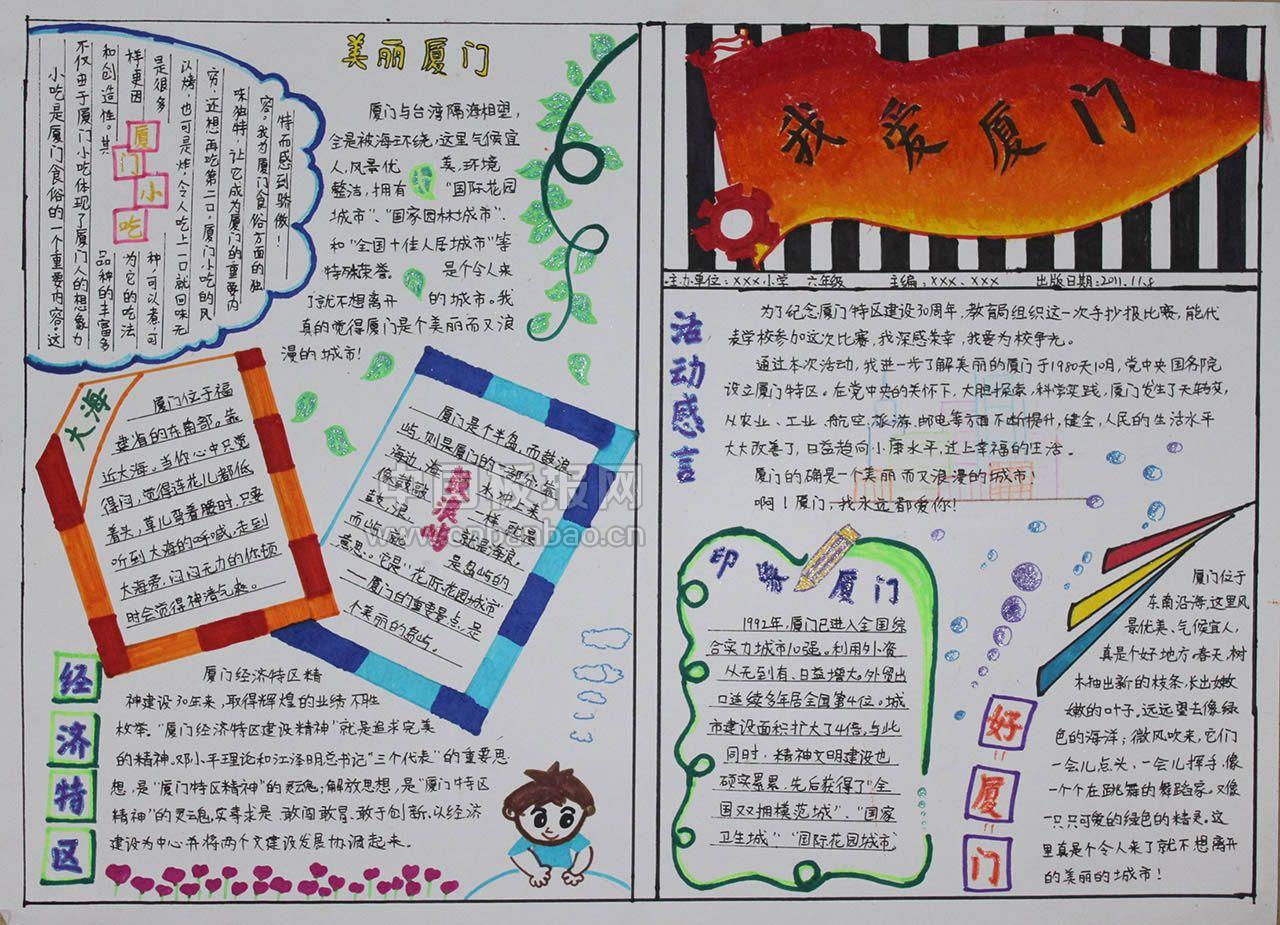 我爱厦门
主办单位：xxx小学 六年级 主编：xxx、xxx 出版日期：2011.11.8
活动感言
为了纪念厦门特区建设30周年，教育局组织这一次手抄报比赛，能代
表学校参加这次比赛，我深感荣幸，我要为校争光。
通过本次活动，我进一步了解美丽的厦门于1980年10月，党中央国务院
设立厦门特区。在党中央的关怀下，大胆探索，科学实践，厦门发生了天转变，
从农业、工业、航空、旅游、邮电等方面不断提升，健全，人民的生活水平
大大改善了，日益趋向小康水平，过上幸福的生活。
厦门的确是一个美丽而又浪漫的城市！
啊！厦门，我永远都爱你！
印象厦门
1992年，厦门已进入全国综
合实力城市10强。利用外资
从无到有、日益增大。外贸出
口连续多年居全国第4位。城
市建设面积扩大了4倍，与此
同时，精神文明建设也
硕实累累，先后获得了“全
国双拥模范城”、“国家
卫生城”、“国际花园城市。
好厦门
厦门位于
东南沿海，这里风
景优美、气候宜人，
真是个好地方。春天，树
木抽出新的枝条，长出嫩
嫩的叶子，远远望去像绿
色的海洋；微风吹来，它们
一会儿点头、一会儿挥手，像
一个个在跳舞的舞蹈家。又像
一只只可爱的绿色的精灵。这
里真是个令人来了就不想离开
的美丽的城市！
美丽厦门
厦门与台湾隔海相望，
全是被海环绕，这里气候宜
人，风景优美，环境
整洁，拥有“国际花园
城市”、“国家园林城市”、
和“全国十佳人居城市”等
特殊荣誉。是个令人来
了就不想离开的城市。我
真的觉得厦门是个美丽而又浪
漫的城市！
厦门小吃
小吃是厦门食俗的一个重要内容。这
不仅由于厦门小吃体现了厦门人的想象力
和创造性。其品种的丰富多
样更因为它的吃法
是很多种，可以煮，可
以烤，也可是炸，令人吃上一口就回味无
穷，还想再吃第二口，厦门小吃的风
味独特，让它成为厦门的重要内
容。我为厦门食俗方面的独
特而感到骄傲！
大海
厦门位于福
建省的东南部。靠
近大海。当你心中只觉
得闷，觉得连花儿都低
着头，草儿弯着腰时，只要
听到大海的呼喊，走到
大海旁，闷闷无力的你顿
时会觉得神清气爽。
鼓浪屿
厦门是个半岛，而鼓浪
屿，则是厦门的一部分。每
海边，海水冲来
像鼓敲一样，就是
鼓，浪，就是海浪，
而屿，就是岛屿的
意思。它是“花际花园城市”
—厦门的重要景点，是
个美丽的岛屿。
经济特区
厦门经济特区精
神建设30年来，取得辉煌的业绩不胜
枚举。“厦门经济特区建设精神”就是追求完美
的精神。邓小平理论和江泽明总书记“三个代表”的重要思
想，是“厦门特区精神”的灵魂；解放思想，是“厦门特区
精神”的灵魂，实事求是、敢闯敢冒、敢于创新，以经济
建设为中心并将两个文建设发展协调起来。
中国板报网
www.cnbanbao.cn